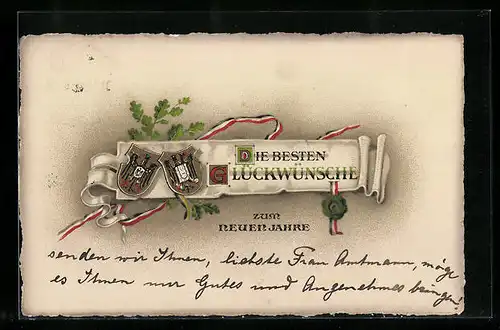 DIE BESTEN
GLÜCKWÜNSCHE
ZUM
NEUEN JAHRE
senden wir Ihnen, liebste Frau Amtmann, möge
es Ihnen nur Gutes und Angenehmes bringen!